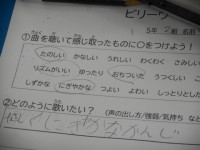 ビリーブ
5年 2組 名前
①曲を聴いて感じ取ったものに○をつけよう！
たのしい かなしい うれしい わくわく さみしい
リズムがいい ゆったり おちついた うつくしい
しずかな にぎやかな つよい よわい しっとりとした
②どのように歌いたい？ (声の出し方/強弱/気持ち な
にぎやかなかんじ